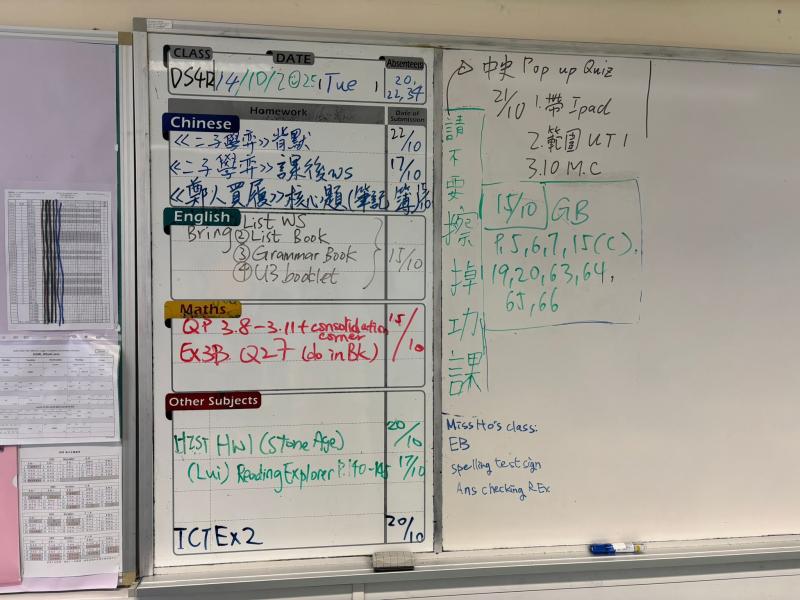 CLASS
DATE
Absentees
14/10/2025, Tue
20,
22,34
Homework
Date of Submission
Chinese
《二子學弈》背默
22/10
《二子學弈》課後WS
17/10
《鄭人買履》核心題(筆記簿
English
Bring
List WS
② List Book
③ Grammar Book
④ U3 booklet
15/10
Maths
QP 3.8-3.11 + consolidation corner
Ex3B Q27 (do in Bk)
15/10
Other Subjects
HIST HW1 (Stone Age)
20/10
(Lui) Reading Explorer P.140-145
17/10
ICT Ex2
20/10
中史 Pop up Quiz
21/10
1.帶Ipad
2.範圍UT1
3.10 M.C
請不要擦掉功課
15/10 GB
P.5,6,7,15(C).
19,20,63,64,
65,66
Miss Ho's class:
EB
spelling test sign
Ans checking R.Ex